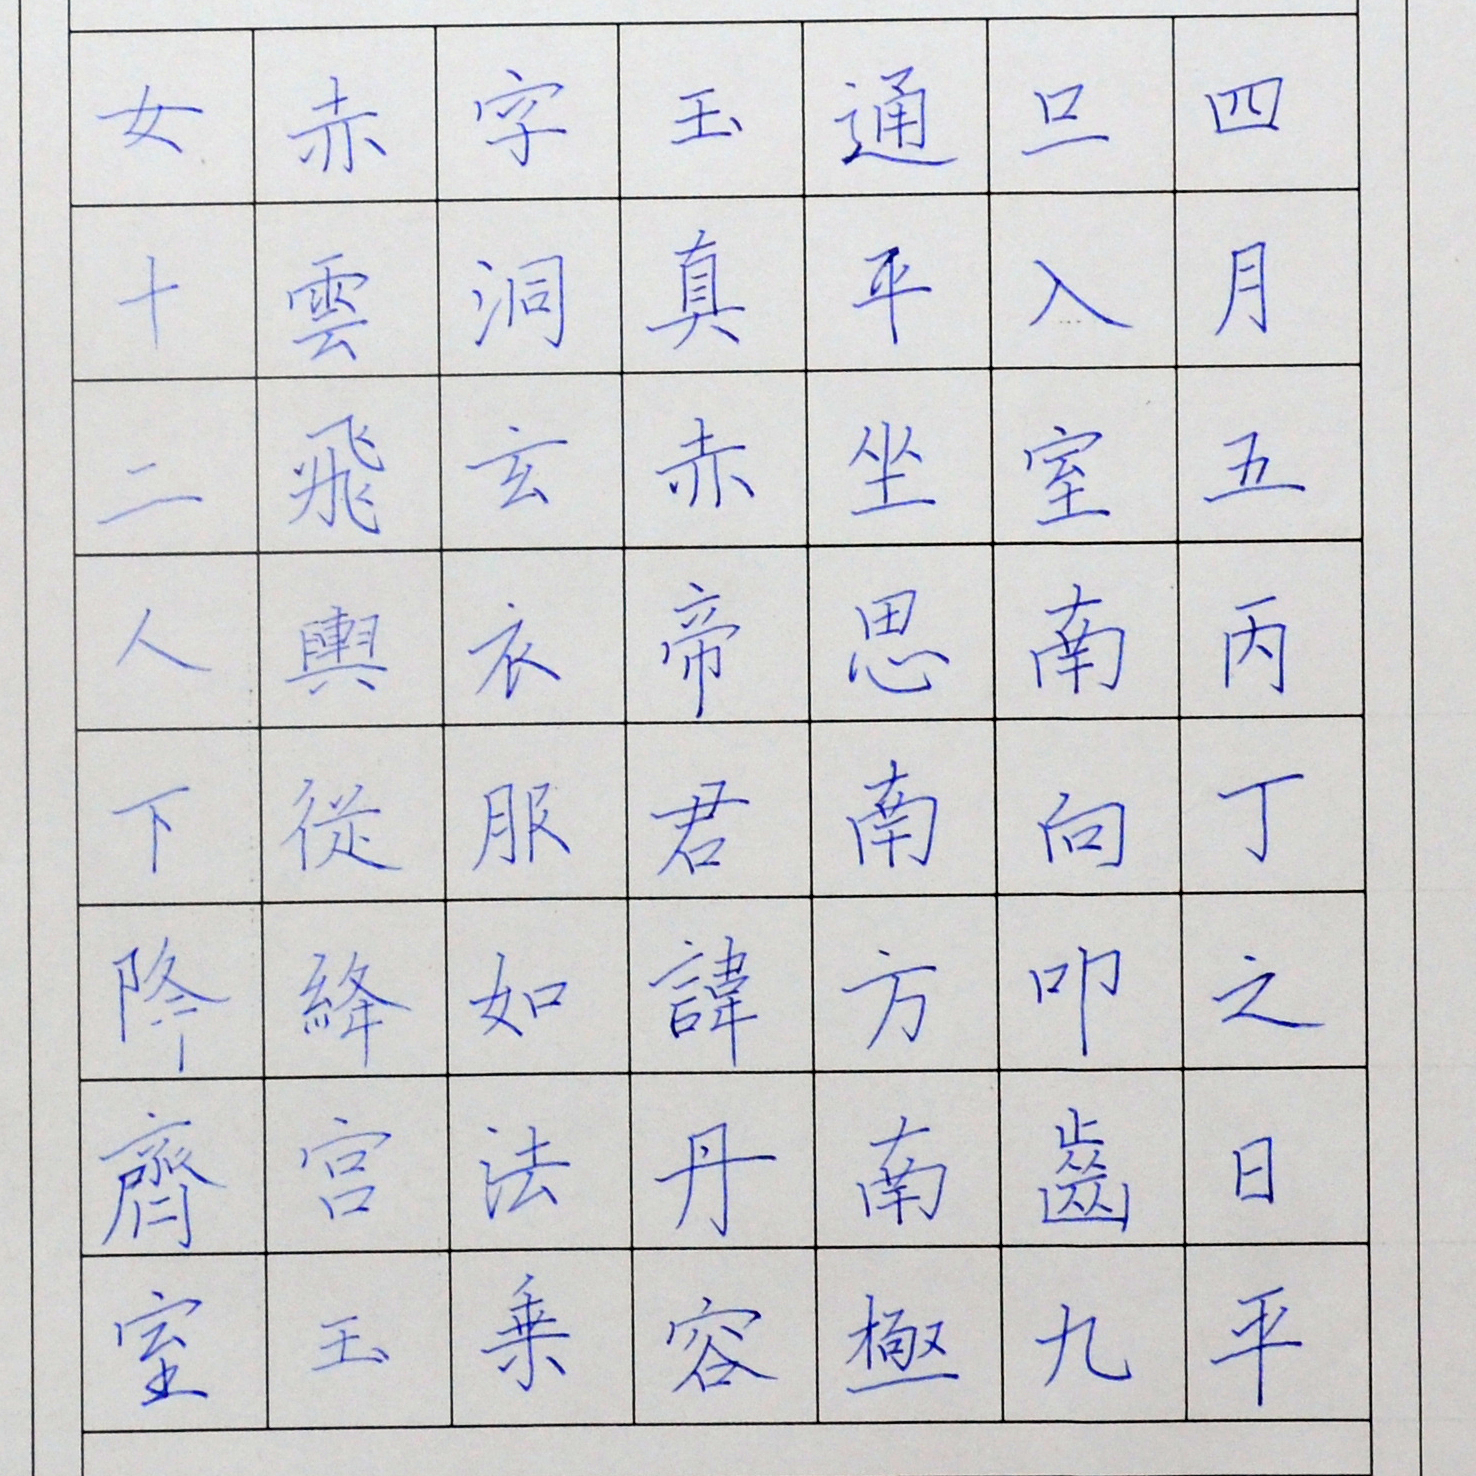 四月五丙丁之日平
旦入室南向叩齒九
通平坐思南方南極
玉真赤帝君諱丹容
字洞玄衣服如法乗
赤雲飛輿從絳宫玉
女十二人下降齋室